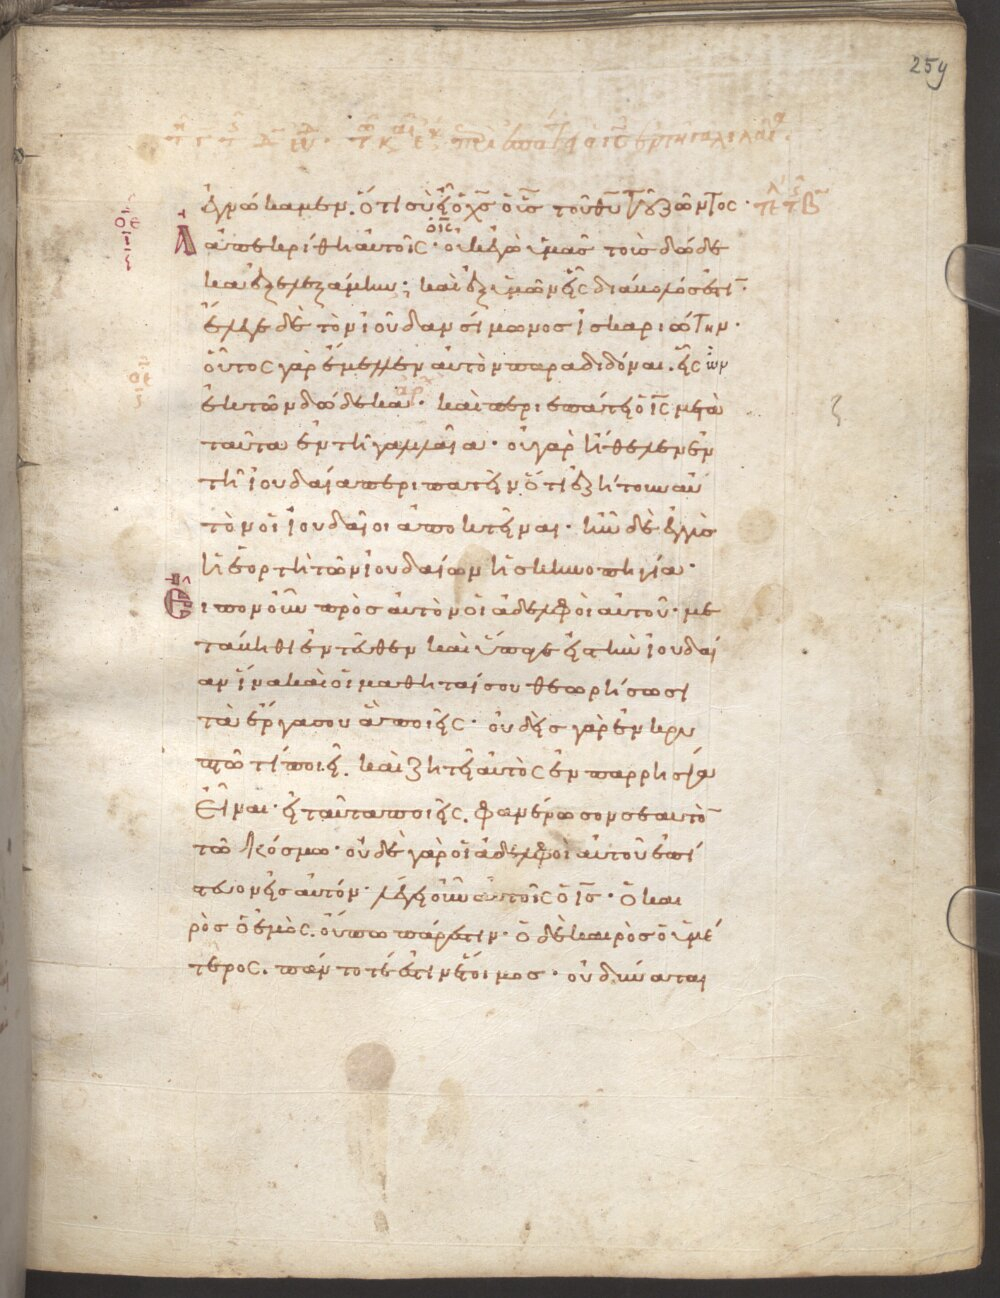 259
ἐγνώκαμεν. ὅτι σὺ εἶ ὁ χς ὁ υς τοῦ θυ τοῦ ζῶντος·
ἀπεκρίθη αὐτοῖς· ὁ ις οὐκ ἐγὼ ὑμᾶς τοὺς δώδε
κα ἐξελεξάμην; καὶ ἐξ ὑμῶν εἷς διάβολός ἐστι·
ἔλεγε δὲ τὸν ἰούδαν σίμωνος ἰσκαριώτην·
οὗτος γὰρ ἔμελλεν αὐτὸν παραδιδόναι. εἷς ὢν
ἐκ τῶν δώδεκα· καὶ περιεπάτει ὁ ις μετὰ
ταῦτα ἐν τῆ γαλιλαία· οὐ γὰρ ἤθελεν ἐν
τῆ ἰουδαία περιπατεῖν ὅτι ἐζήτουν αὐ
τὸν οἱ ἰουδαῖοι ἀποκτεῖναι· ἦν δὲ ἐγγὺς
ἡ ἑορτὴ τῶν ἰουδαίων ἡ σκηνοπηγία·
εἶπον οὖν πρὸς αὐτὸν οἱ ἀδελφοὶ αὐτοῦ· με
τάβηθι ἐντεῦθεν καὶ ὕπαγε εἰς τὴν ἰουδαί
αν ἵνα καὶ οἱ μαθηταί σου θεωρήσωσι
τὰ ἔργα σου ἃ ποιεῖς· οὐδεὶς γὰρ ἐν κρυ
πτῶ τί ποιεῖ. καὶ ζητεῖ αὐτὸς ἐν παρρησία
εἶναι· εἰ ταῦτα ποιεῖς. φανέρωσον σεαυτὸ
τῶ κόσμω· οὐδὲ γὰρ οἱ ἀδελφοὶ αὐτοῦ ἐπί
στευον εἰς αὐτόν· λέγει οὖν αὐτοῖς ὁ ις· ὁ και
ρὸς ὁ ἐμὸς. οὔπω πάρεστιν· ὁ δὲ καιρὸς ὁ ὑμέ
τερος. πάντοτέ ἐστιν ἕτοιμος· οὐ δύναται